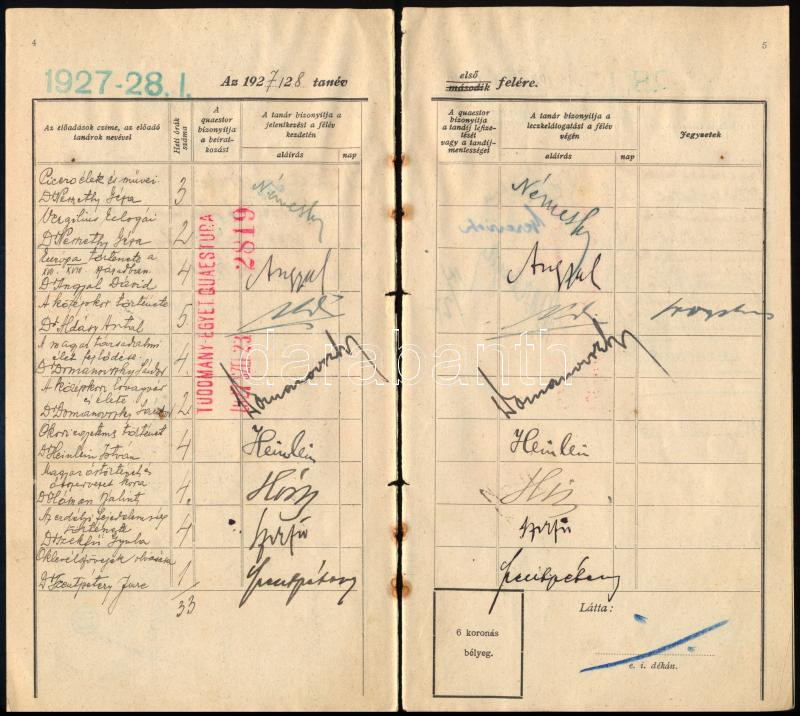 4
1927-28. I.
Az 1927/28 tanév
Az előadások címe, az előadó
tanárok nevével
Heti órák
száma
A
quaestor
bizonyítja
a beirat-
kozást
A tanár bizonyítja a
jelentkezést a félév
kezdetén
aláírás
nap
Cicero élete és művei
Dr Némethy Géza
3
Némethy
Vergilius Eclogái
Dr Némethy Géza
2
Európa története a
XVII. XVIII. században
Dr Angyal Dávid
4
Angyal
A középkor története
Dr Aldásy Antal
5.
A magyar társadalmi
élet fejlődése
Dr Domanovszky Sándor
4.
Domanovszky
A középkori lovagvár
és élete
Dr Domanovszky Sándor
2
Ókori egyetemes történet
Dr Heinlein István
4
Heinlein
Magyar őstörténet és
Dr Hóman Bálint
4.
Az erdélyi fejedelemség
története
Dr Szekfű Gyula
4
Szekfű
Oklevélszövegek olvasása
Dr Szentpétery Imre
1
Szentpétery
33
TUDOMÁNY-EGYET. QUAESTURA
2819
5
első
második felére.
A quaestor
bizonyítja
a tandíj lefize-
tését
vagy a tandíj-
mentességet
A tanár bizonyítja a
leczkelátogatást a félév
végén
aláírás
nap
Jegyzetek
Némethy
Angyal
Domanovszky
Heinlein
Szekfű
Szentpétery
6 koronás
bélyeg.
Látta:
e. i. dékán.
darabanth